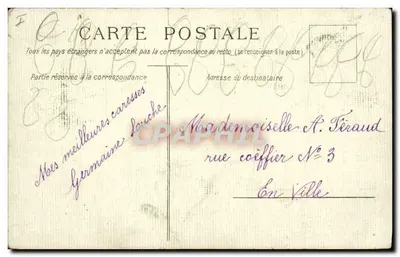 CARTE POSTALE
Tous les pays étrangers n'acceptent pas la correspondance au recto (se renseigner à la poste)
Partie réservée à la correspondance
Adresse du destinataire
Mes meilleures caresses
Germaine
Mademoiselle A. Féraud
rue coiffier N° 3
En Ville